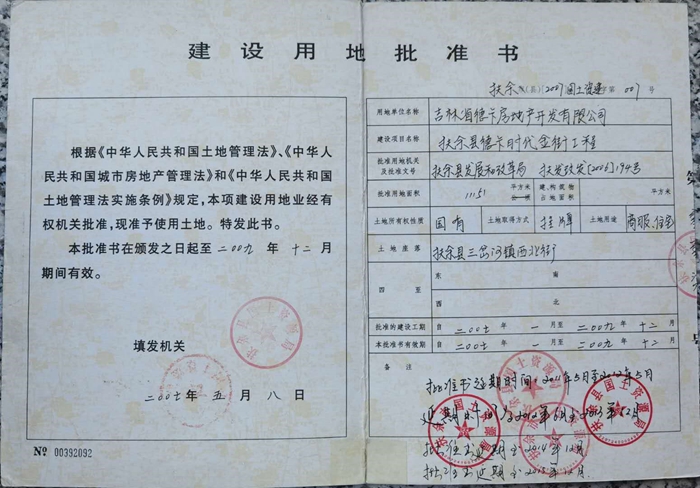 建设用地批准书
根据《中华人民共和国土地管理法》、《中华人
民共和国城市房地产管理法》和《中华人民共和国
土地管理法实施条例》规定，本项建设用地业经有
权机关批准，现准予使用土地。特发此书。
本批准书在颁发之日起至二00九年十二月
期间有效。
填发机关
二00七年五月八日
Nº 00392092
扶余县(2007国土资建字第007号
用地单位名称 吉林省德卡房地产开发有限公司
建设项目名称 扶余县德卡时代金街工程
批准用地机关及批准文号 扶余县发展和改革局 扶发改发[2006]194号
批准用地面积 11151 平方米 建、构筑物占地面积 平方米
土地所有权性质 国有 土地取得方式 挂牌 土地用途 商服、住宅
土地座落 扶余县三岔河镇西北街
四至 东 南
西 北
批准的建设工期 自二00七年一月至二00九年十二月
本批准书有效期 自二00七年一月至二00九年十二月
备注
批准书延期时间：2011年5月至2012年5月
延期 2012年6月至2013年12月
批准书延期至2014年12月
批准书延期至2015年12月.
扶余县国土资源局